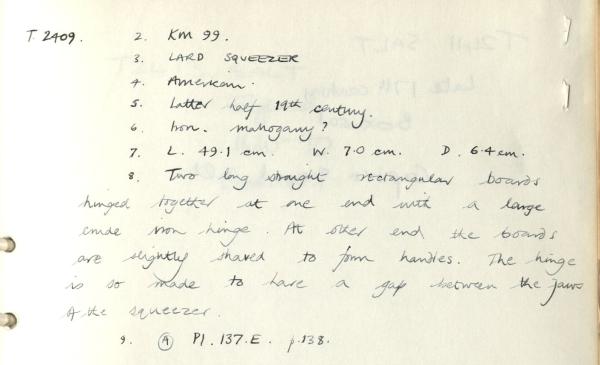 T. 2409. 2. KM 99.
3. LARD SQUEEZER
4. American.
5. Latter half 19th century.
6. Iron. mahogany?
7. L. 49.1 cm. W. 7.0 cm. D. 6.4 cm.
8. Two long straight rectangular boards
hinged together at one end with a large
crude iron hinge. At other end the boards
are slightly shaved to form handles. The hinge
is so made to have a gap between the jaws
of the squeezer.
9. A Pl. 137.E. p.138.